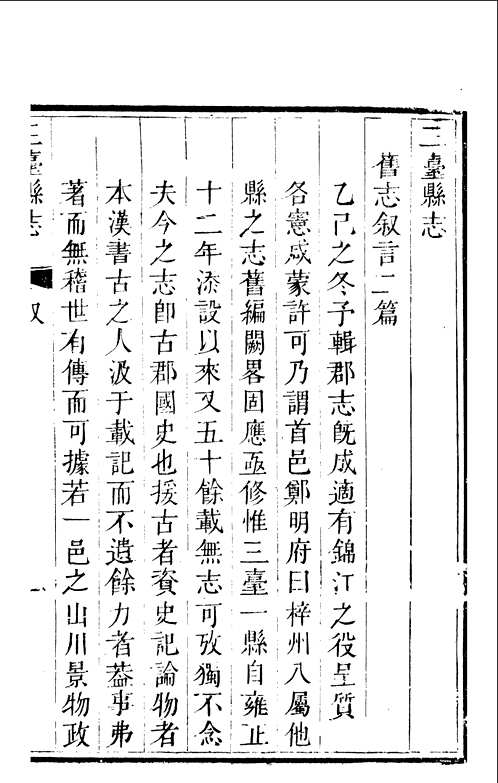 三臺縣志
舊志叙言二篇
乙己之冬予輯郡志旣成適有錦江之役呈質
各憲咸蒙許可乃謂首邑鄭明府曰梓州八屬他
縣之志舊編闕畧固應亟修惟三臺一縣自雍正
十二年添設以來又五十餘載無志可攷獨不念
夫今之志卽古郡國史也援古者資史記論物者
本漢書古之人汲于載記而不遺餘力者葢事弗
著而無稽世有傳而可據若一邑之山川景物政
三臺縣志
叙
一